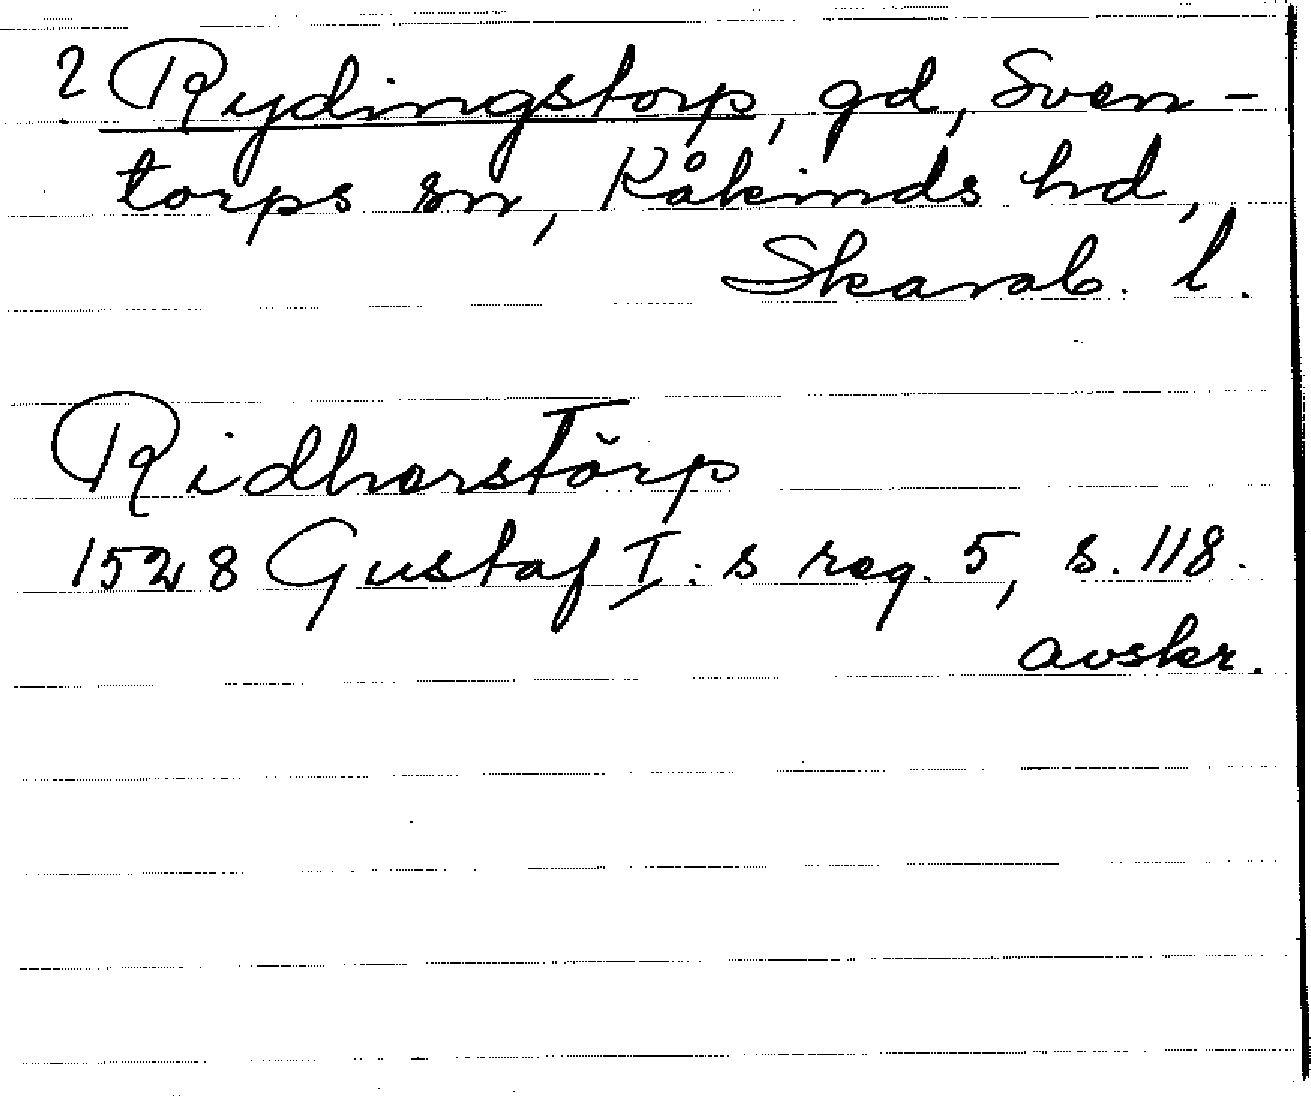 ? Rydingstorp, gd, Sven-
torps sn, Kåkinds hd,
Skarab. l.
Ridharstorp
1528 Gustaf I:s reg. 5, s. 118.
avskr.